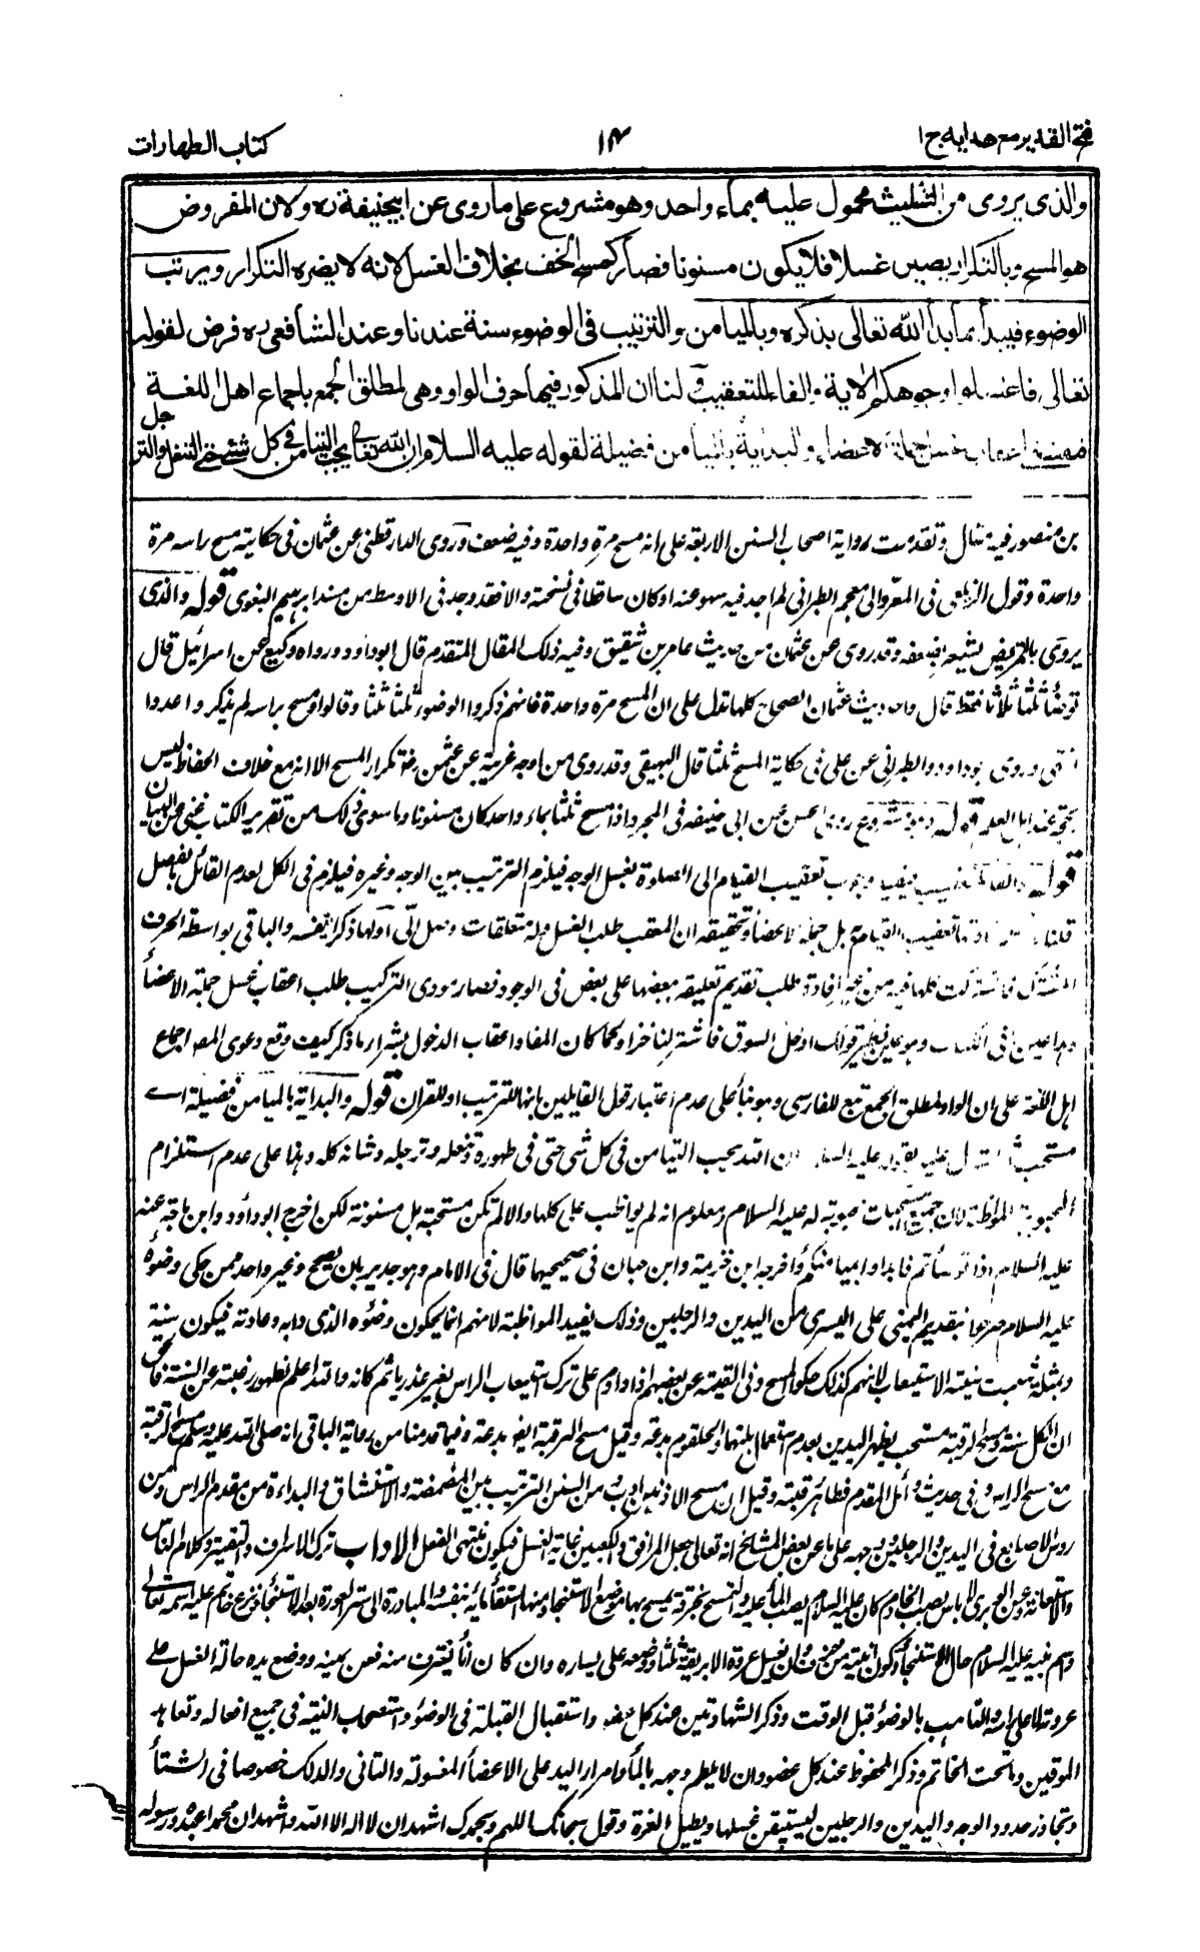 فتح القدير مع هدايه ج ١
١٤
كتاب الطهارات
والذى يروى من التثليث محمول عليه بماء واحد وهو مشروع على ما روى عن ابيحنيفة ره ولان المفروض
هو المسح وبالتكرار يصير غسلا فلا يكون مسنونا فصار كمسح الخف بخلاف الغسل لانه لا يضره التكرار ويرتب
الوضوء فيبدأ بما بدأ الله تعالى بذكره وبالميامن والترتيب فى الوضوء سنة عندنا وعند الشافعى ره فرض لقوله
تعالى فاغسلوا وجوهكم الاية والفاء للتعقيب ولنا ان المذكور فيها حرف الواو وهى لمطلق الجمع باجماع اهل اللغة
فيقتضى اعقاب غسل جملة الاعضاء والبداية بالميامن فضيلة لقوله عليه السلام ان الله تعالى يحب التيامن فى كل شئ حتى التنعل والترجل
بن منصور فيه مقال وتقدمت رواية اصحاب السنن الاربعة على انه مسح مرة واحدة وفيه ضعف وروى الدارقطنى عن عثمان فى حكايته مسح راسه مرة
واحدة وقول الزيلعى فى المعزو الى معجم الطبرانى لم اجد فيه سهو عنه او كان ساقطا فى نسخته والا فقد وجد فى الاوسط من مسند ابرهيم البغوى قوله والذى
يروى بالتمريض يشير ضعفه وقد روى عن عثمان من حديث عامر بن شقيق وفيه ذلك المقال المتقدم قال ابو داود ورواه وكيع عن اسرائيل قال
توضأ ثلثا ثلاثا فقط قال واحاديث عثمان الصحاح كلها تدل على ان المسح مرة واحدة فانهم ذكروا الوضوء ثلثا ثلثا وقالوا ومسح براسه لم يذكروا عددا
وروى ابو داود والطبرانى عن على فى حكاية المسح ثلثا قال البيهقى وقد روى من اوجه غريبة عن عثمن رض تكرار المسح الا انه مع خلاف الحفاظ ليس
بحجة عند اهل العلم قوله وهو مشروع روى الحسن عن ابى حنيفه فى المجرد اذا مسح ثلثا بماء واحد كان مسنونا وما سوى ذلك من تقرير الكتاب غنى عن البيان
قوله والفاء للتعقيب يفيد وجوب تعقيب القيام الى الصلوة بغسل الوجه فيلزم الترتيب بين الوجه وغيره فيلزم فى الكل لعدم القائل بالفصل
قلنا تعقيب القيام به بل جملة الاعضاء وتحقيقه ان المعقب طلب الغسل وله متعلقات وصل الى اولها ذكرا بنفسه والباقى بواسطة الحرف
المشترك فاشتركت كلها فيه من غير افادة طلب تقديم تعليقه ببعضها على بعض فى الوجود فصار مؤدى التركيب طلب اعقاب غسل جملة الاعضاء
وهو عين نظير قولك ادخل السوق فاشتر لنا خبزا ولحما كان المفاد اعقاب الدخول بشراء ما ذكر كيف وقع ودعوى المص اجماع
اهل اللغة على ان الواو لمطلق الجمع تبع للفارسى وهو بناء على عدم اعتبار قول القايلين بانها للترتيب او للقران قوله والبداية بالميامن فضيلة اے
مستحب ثم استدل عليه بقوله عليه السلام ان الله يحب التيامن فى كل شئ حتى فى طهوره وتنعله وترجله وشانه كله وهذا على عدم استلزام
المحبوبية المواظبة لان جميع المستحبات محبوبة له عليه السلام ومعلوم انه لم يواظب على كلها والا لم تكن مستحبة بل مسنونة لكن اخرج ابو داود وابن ماجة عنه
عليه السلام اذا توضأتم فابداوا بميامنكم واخرجه ابن خزيمة وابن حبان فى صحيحيهما قال فى الامام وهو جدير بان يصح وغير واحد ممن حكى وضوءه
عليه السلام صرحوا بتقديم اليمنى على اليسرى من اليدين والرجلين وذلك يفيد المواظبة لانهم انما يحكون وضوءه الذى دابه وعادته فيكون سنية
وبمثله تثبت سنية الاستيعاب لانهم كذلك حكوا المسح وفى القنية عن بعضهم اذا داوم على ترك استيعاب الراس بغير عذر ياثم كانه والله اعلم لظهور رغبته عن السنة فالحق
ان الكل سنة ومسح الرقبة مستحب بظهر اليدين لعدم استعمال بلتهما والحلقوم بدعة وقيل مسح الرقبة ايضا بدعة وفيما قدمنا من رواية الباقى انه صلى الله عليه وسلم مسح الرقبة
مع مسح الراس وفى حديث وائل المقدم فظاهر رقبته وقيل ان مسح الاذنين ادب ومن السنن الترتيب بين المضمضة والاستنشاق والبداءة من مقدم الراس ومن
رؤس الاصابع فى اليدين والرجلين وجهه على ما عن بعض المشايخ انه تعالى جعل المرافق والكعبين غاية الغسل فيكون منتهى الفعل الاداب ترك الاسراف والتقتير وكلام الناس
والاستعانة وعن الوبرى لا باس بصب الخادم كان عليه السلام يصب الماء عليه والتمسح بخرقة يمسح بها موضع الاستنجاء ومنها استقاء مائه بنفسه والمبادرة الى ستر العورة بعد الاستنجاء ونزع خاتم عليه اسمه تعالى
واسم نبيه عليه السلام حال الاستنجاء وكون انيته من خزف وان يغسل عروة الابريق ثلثا ووضعه على يساره وان كان اناء يغترف منه فعن يمينه ووضع يده حالة الغسل على
عروته لا على راسه والتاهب بالوضوء قبل الوقت وذكر الشهادتين عند كل عضو واستقبال القبلة فى الوضوء واستصحاب النية فى جميع افعاله وتعاهد
الموقين وما تحت الخاتم وذكر المحفوظ عند كل عضو وان لا يلطم وجهه بالماء وامرار اليد على الاعضاء المغسولة والتانى والدلك خصوصا فى الشتاء
وتجاوز حدود الوجه واليدين والرجلين ليستيقن غسلها ويطيل الغرة وقول سبحانك اللهم وبحمدك اشهد ان لا اله الا الله واشهد ان محمدا عبده ورسوله